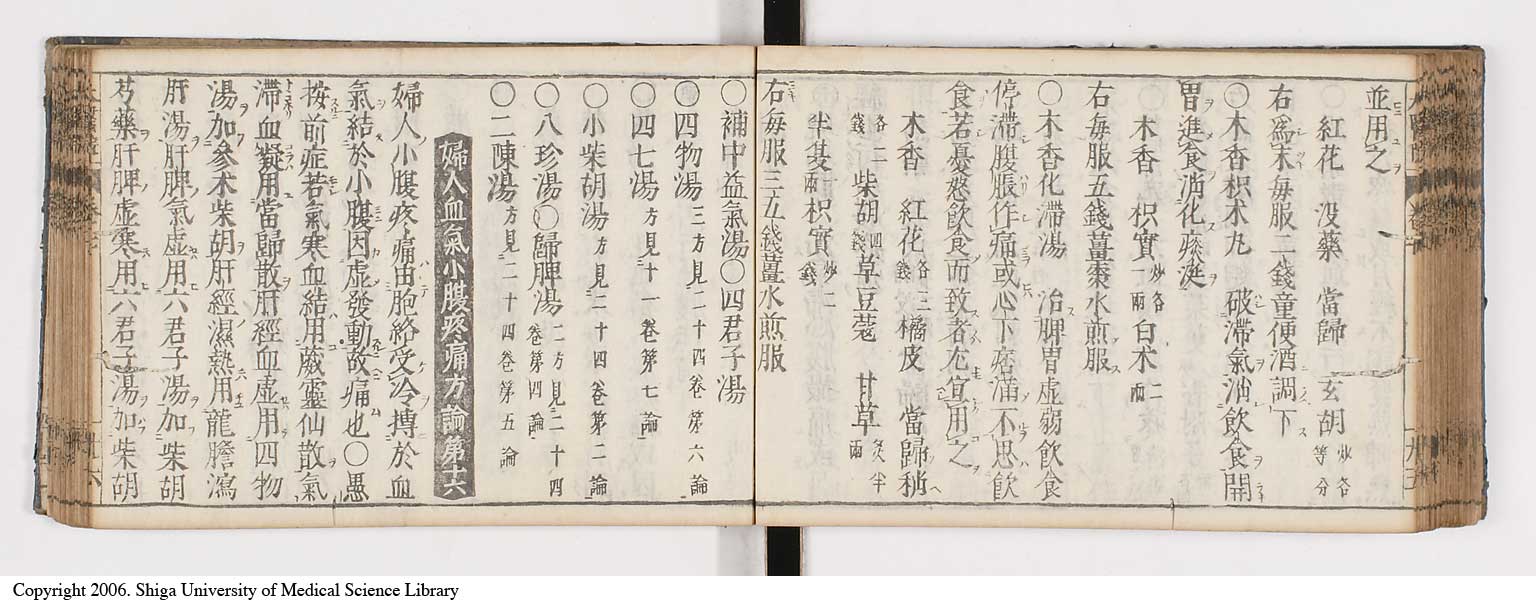 並用之
紅花 没藥 當歸 玄胡 炒各等分
右爲末每服二錢童便酒調下
〇木香枳朮丸 破滯氣消飲食開
胃進食消化痰涎
木香 枳實 炒各一兩 白朮 二兩
右每服五錢薑棗水煎服
〇木香化滯湯 治脾胃虛弱飲食
停滯腹脹作痛或心下痞滿不思飲
食若憂慾飲食而致者尤宜用之
木香 紅花 各三錢 橘皮 當歸稍
各二錢 柴胡 四錢 草豆蔻 甘草 炙半兩
半夏 兩 枳實 炒二錢
右每服三五錢薑水煎服
〇補中益氣湯〇四君子湯
〇四物湯 三方見二十四卷第六論
〇四七湯 方見十一卷第七論
〇小柴胡湯 方見二十四卷第二論
〇八珍湯〇歸脾湯 二方見二十四卷第四論
〇二陳湯 方見二十四卷第五論
婦人血氣小腹疼痛方論第十六
婦人小腹疼痛由胞絡受冷搏於血
氣結於小腹因虛發動故痛也〇愚
按前症若氣寒血結用葳靈仙散氣
滯血凝用當歸散肝經血虛用四物
湯加參朮柴胡肝經濕熱用龍膽瀉
肝湯肝脾氣虛用六君子湯加柴胡
芍藥肝脾虛寒用六君子湯加柴胡
Copyright 2006. Shiga University of Medical Science Library